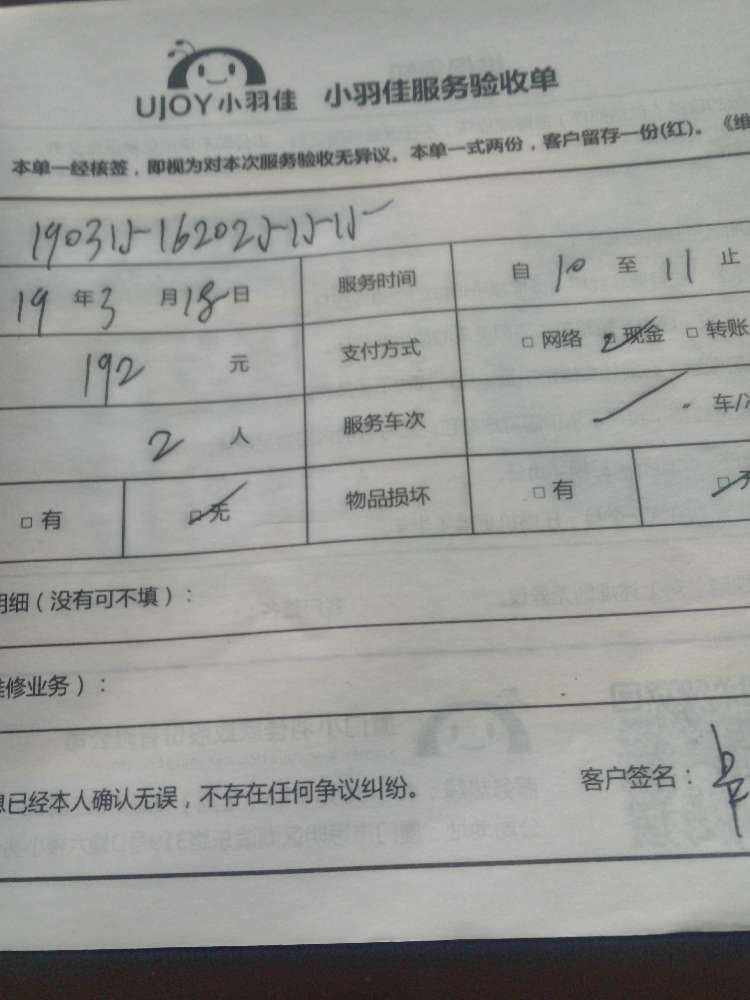 UJOY小羽佳 小羽佳服务验收单
本单一经核签，即视为对本次服务验收无异议。本单一式两份，客户留存一份(红)。《维
190315-162025-15-15-
19 年 3 月 18 日 服务时间 自 10 至 11 止
192 元 支付方式 □ 网络 □ 现金 □ 转账
2 人 服务车次 车/
□ 有 □ 无 物品损坏 □ 有 □
明细（没有可不填）：
维修业务）：
息已经本人确认无误，不存在任何争议纠纷。 客户签名：